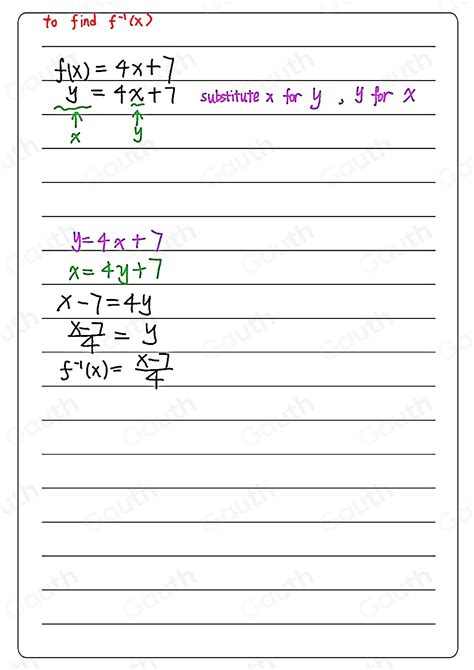 to find f⁻¹(x)
f(x) = 4x+7
y = 4x+7 substitute x for y , y for x
↑ ↑
x y
y=4x+7
x=4y+7
x-7=4y
(x-7)/4 = y
f⁻¹(x)= (x-7)/4
Gauth